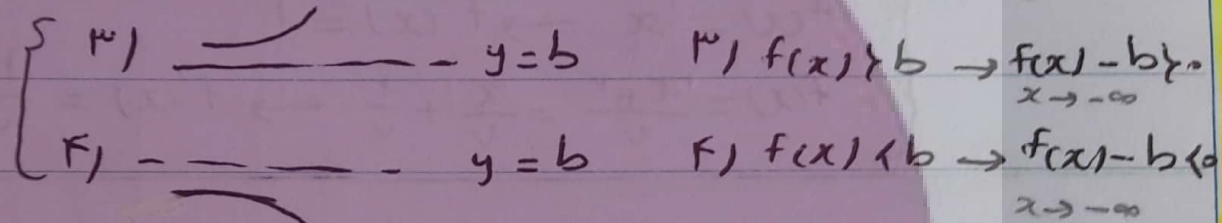 ۳) y = b ۳) f(x) > b → f(x) - b > 0
x → -∞
۴) y = b ۴) f(x) < b → f(x) - b < 0
x → -∞